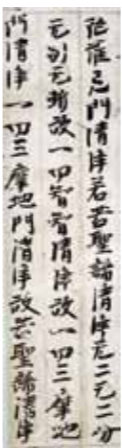 陀羅尼門清淨若苦聖諦清淨无二无二分
无別无斷故一切智智清淨故一切三摩地
門清淨一切三摩地門清淨故苦聖諦清淨